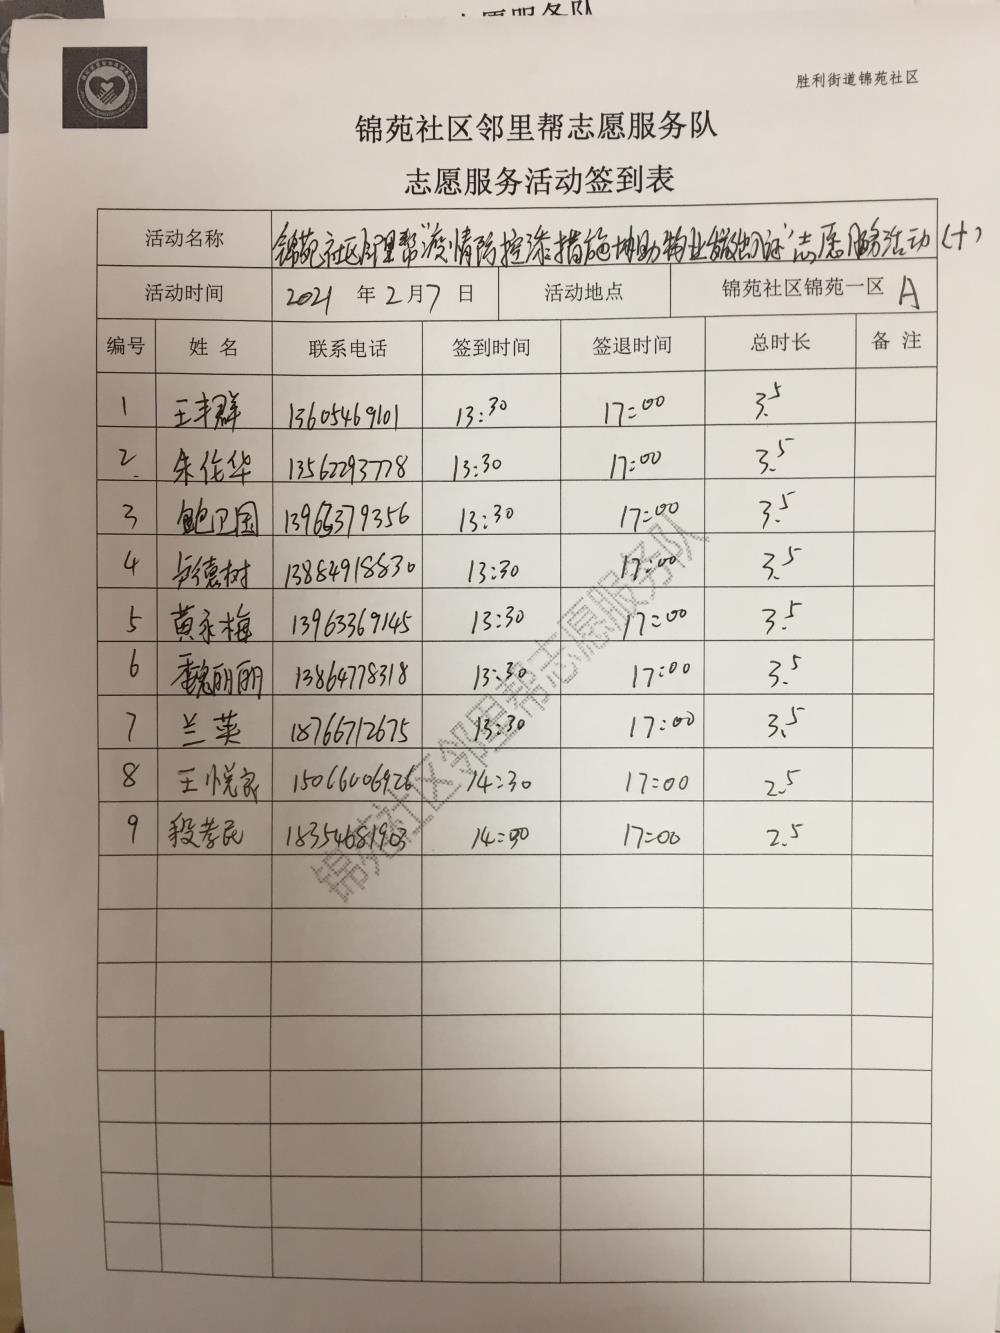 志愿服务队
胜利街道锦苑社区
锦苑社区邻里帮志愿服务队
志愿服务活动签到表
活动名称 锦苑社区邻里帮"疫情防控添措施 协助物业做出证"志愿服务活动(十)
活动时间 2021 年 2 月 7 日 活动地点 锦苑社区锦苑一区 A
编号 姓 名 联系电话 签到时间 签退时间 总时长 备 注
1 王丰群 13605469101 13:30 17:00 3.5
2 朱佐华 13562293778 13:30 17:00 3.5
3 鲍卫国 13966379356 13:30 17:00 3.5
4 卢德树 13884918830 13:30 17:00 3.5
5 黄永梅 13963369145 13:30 17:00 3.5
6 魏丽丽 13864778318 13:30 17:00 3.5
7 兰英 18766712675 13:30 17:00 3.5
8 王悦良 15066006926 14:30 17:00 2.5
9 段孝民 18354681903 14:30 17:00 2.5
锦苑社区邻里帮志愿服务队